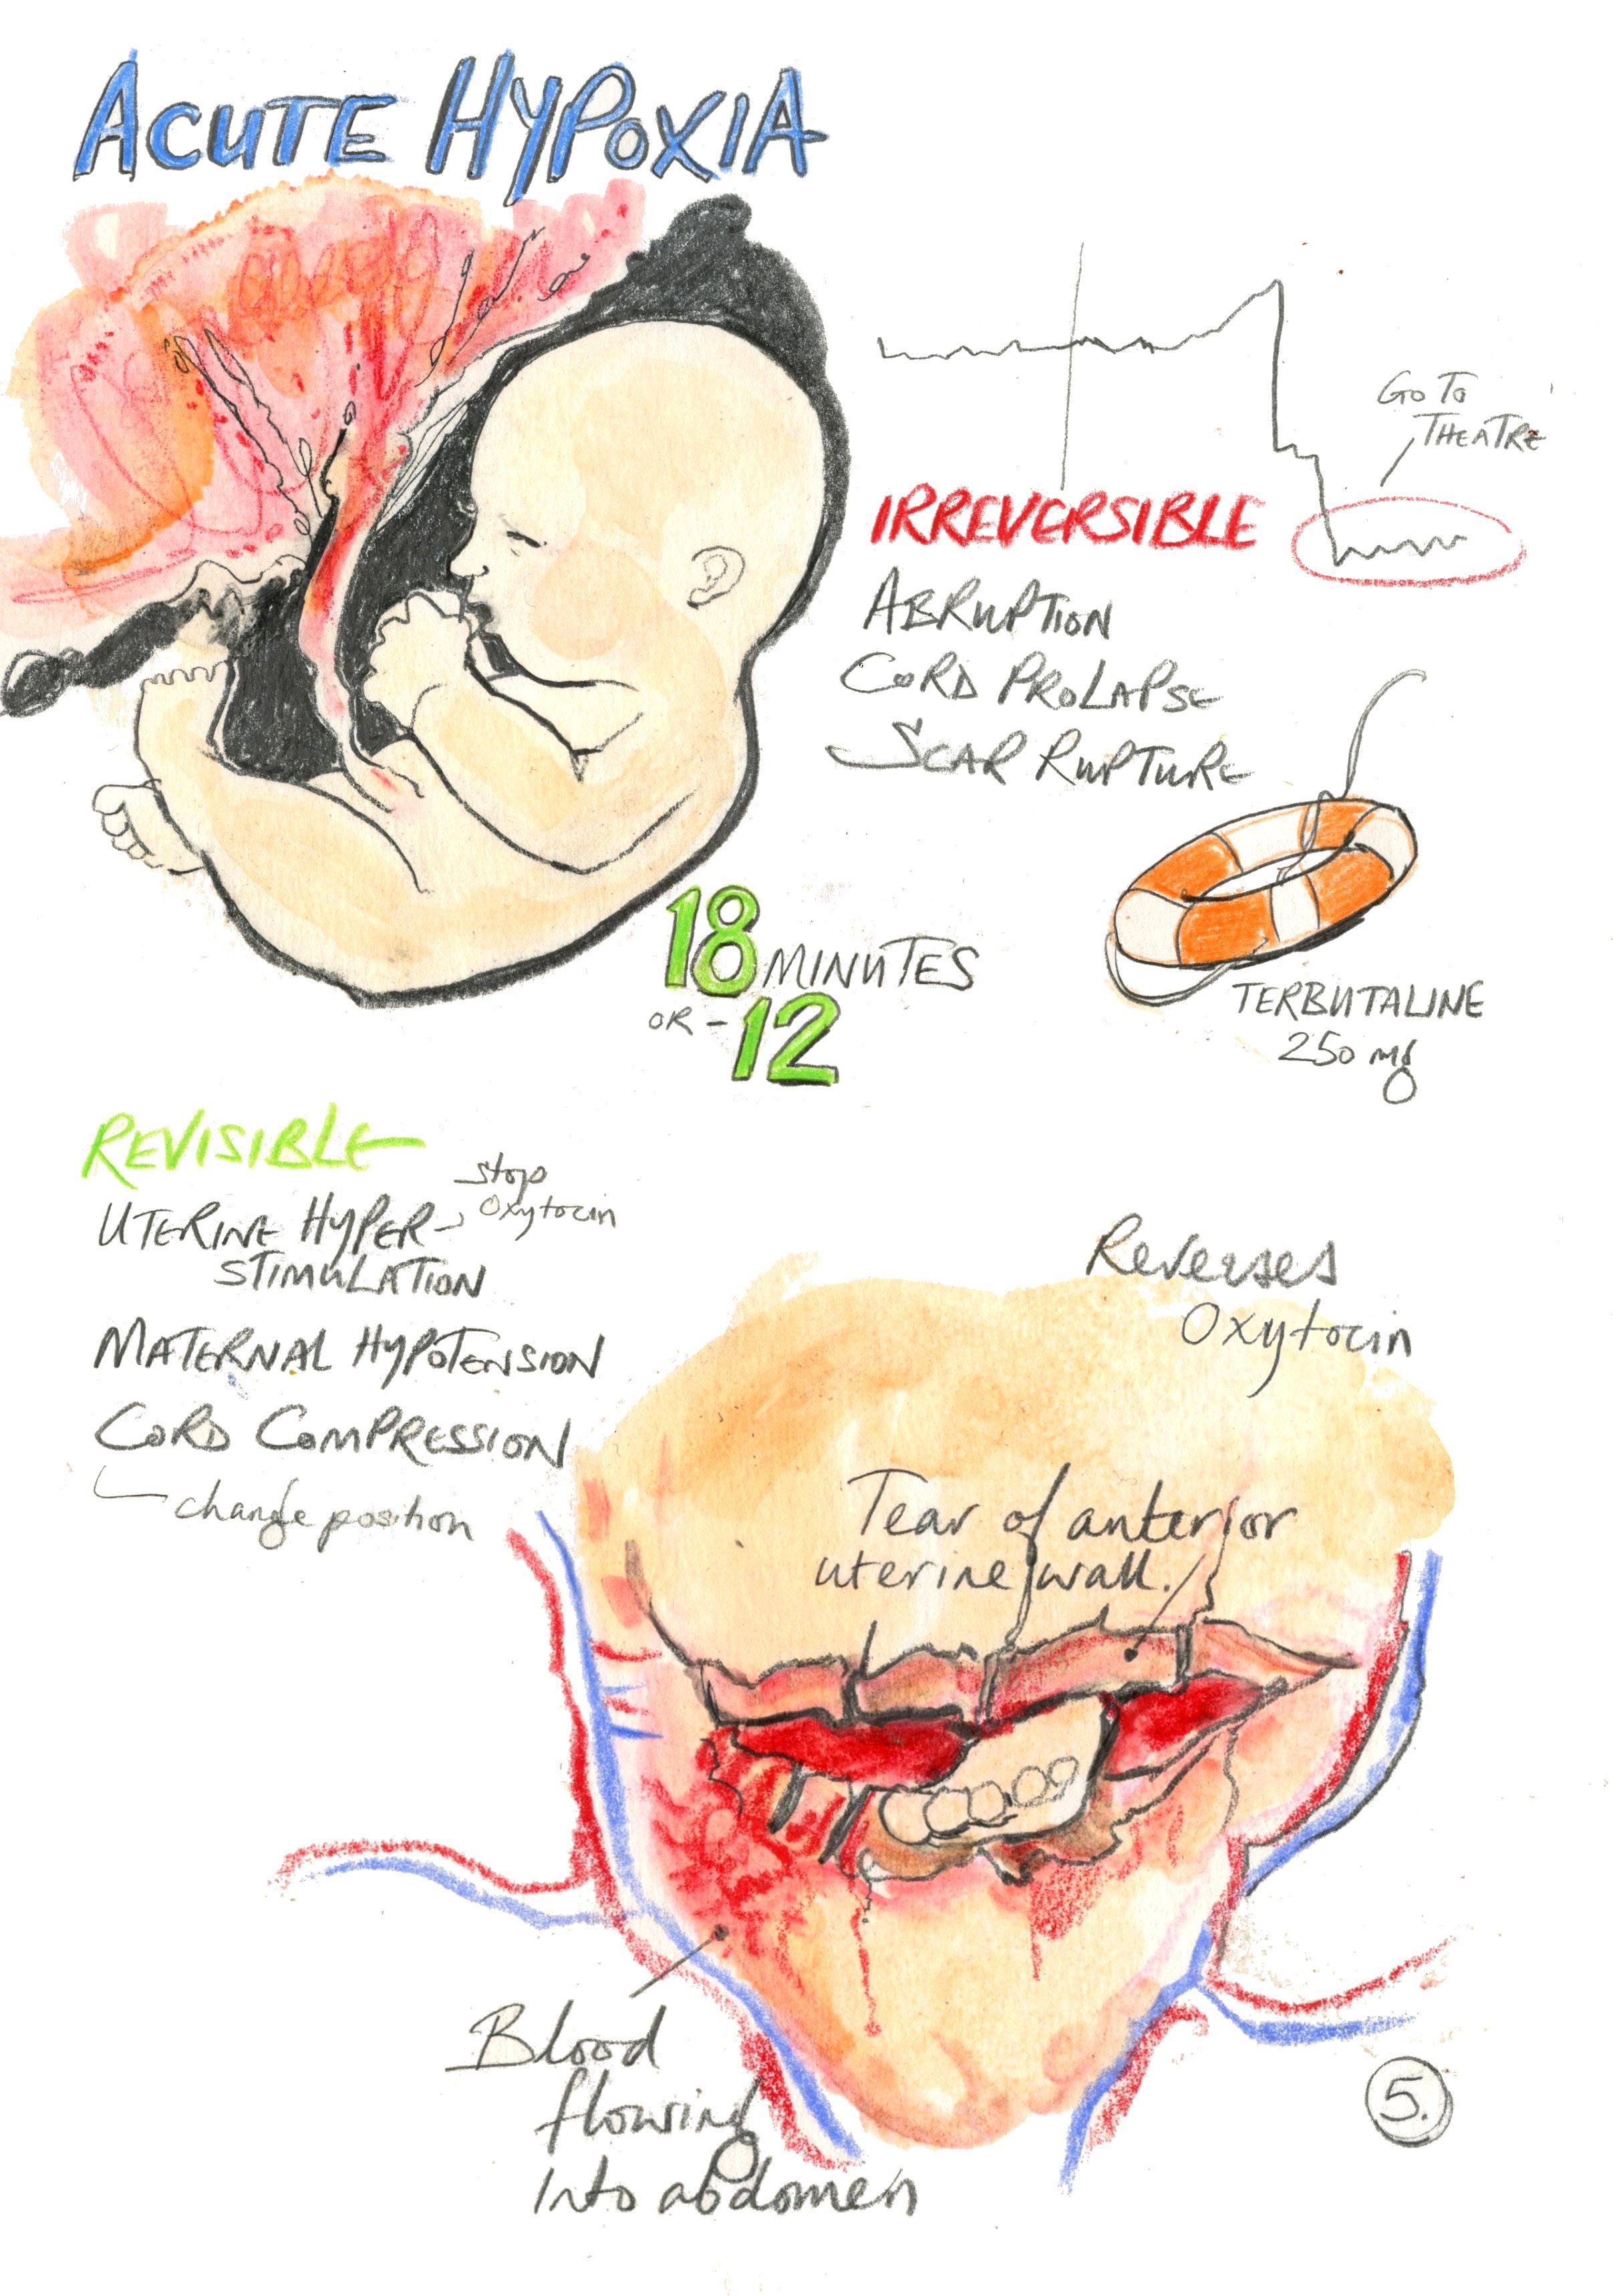 ACUTE HYPOXIA
GO TO
THEATRE
IRREVERSIBLE
ABRUPTION
CORD PROLAPSE
SCAR RUPTURE
18 MINUTES
OR - 12
TERBUTALINE
250 mg
REVISIBLE
stop
Oxytocin
UTERINE HYPER-
STIMULATION
MATERNAL HYPOTENSION
CORD COMPRESSION
change position
Reverses
Oxytocin
Tear of anterior
uterine wall.
Blood
flowing
Into abdomen
5.